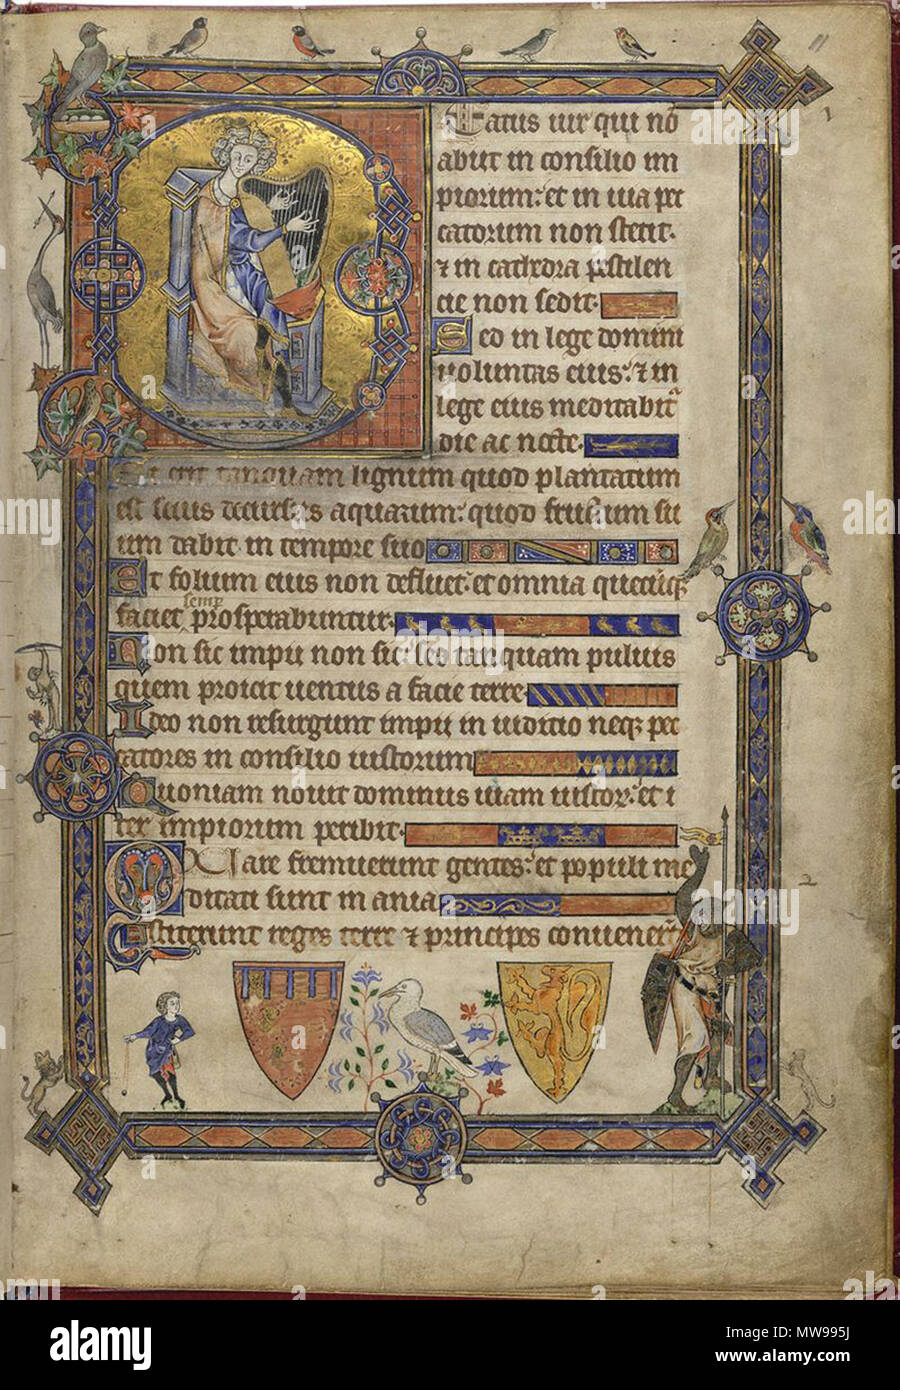 Beatus uir qui nō
abiit in consilio im
piorum: et in uia pec
catorum non stetit·
⁊ in cathedra pestilen
cie non sedit·
Sed in lege domini
uoluntas eius: ⁊ in
lege eius meditabit᷑
die ac nocte·
Et erit tanquam lignum quod plantatum
est secus decursus aquarum: quod fructum su
um dabit in tempore suo
Et folium eius non defluet: et omnia quecūqꝫ
faciet semꝑ prosperabuntur·
Non sic impii non sic: sed tanquam puluis
quem proicit uentus a facie terre
Ideo non resurgunt impii in iudicio neqꝫ pec
catores in consilio iustorum
Quoniam nouit dominus uiam iustoꝝ: et i
ter impiorum peribit·
Quare fremuerunt gentes: et populi me
ditati sunt inania
Astiterunt reges terre ⁊ principes conuener̄t
11
1
2
alamy
Image ID: MW995J
www.alamy.com